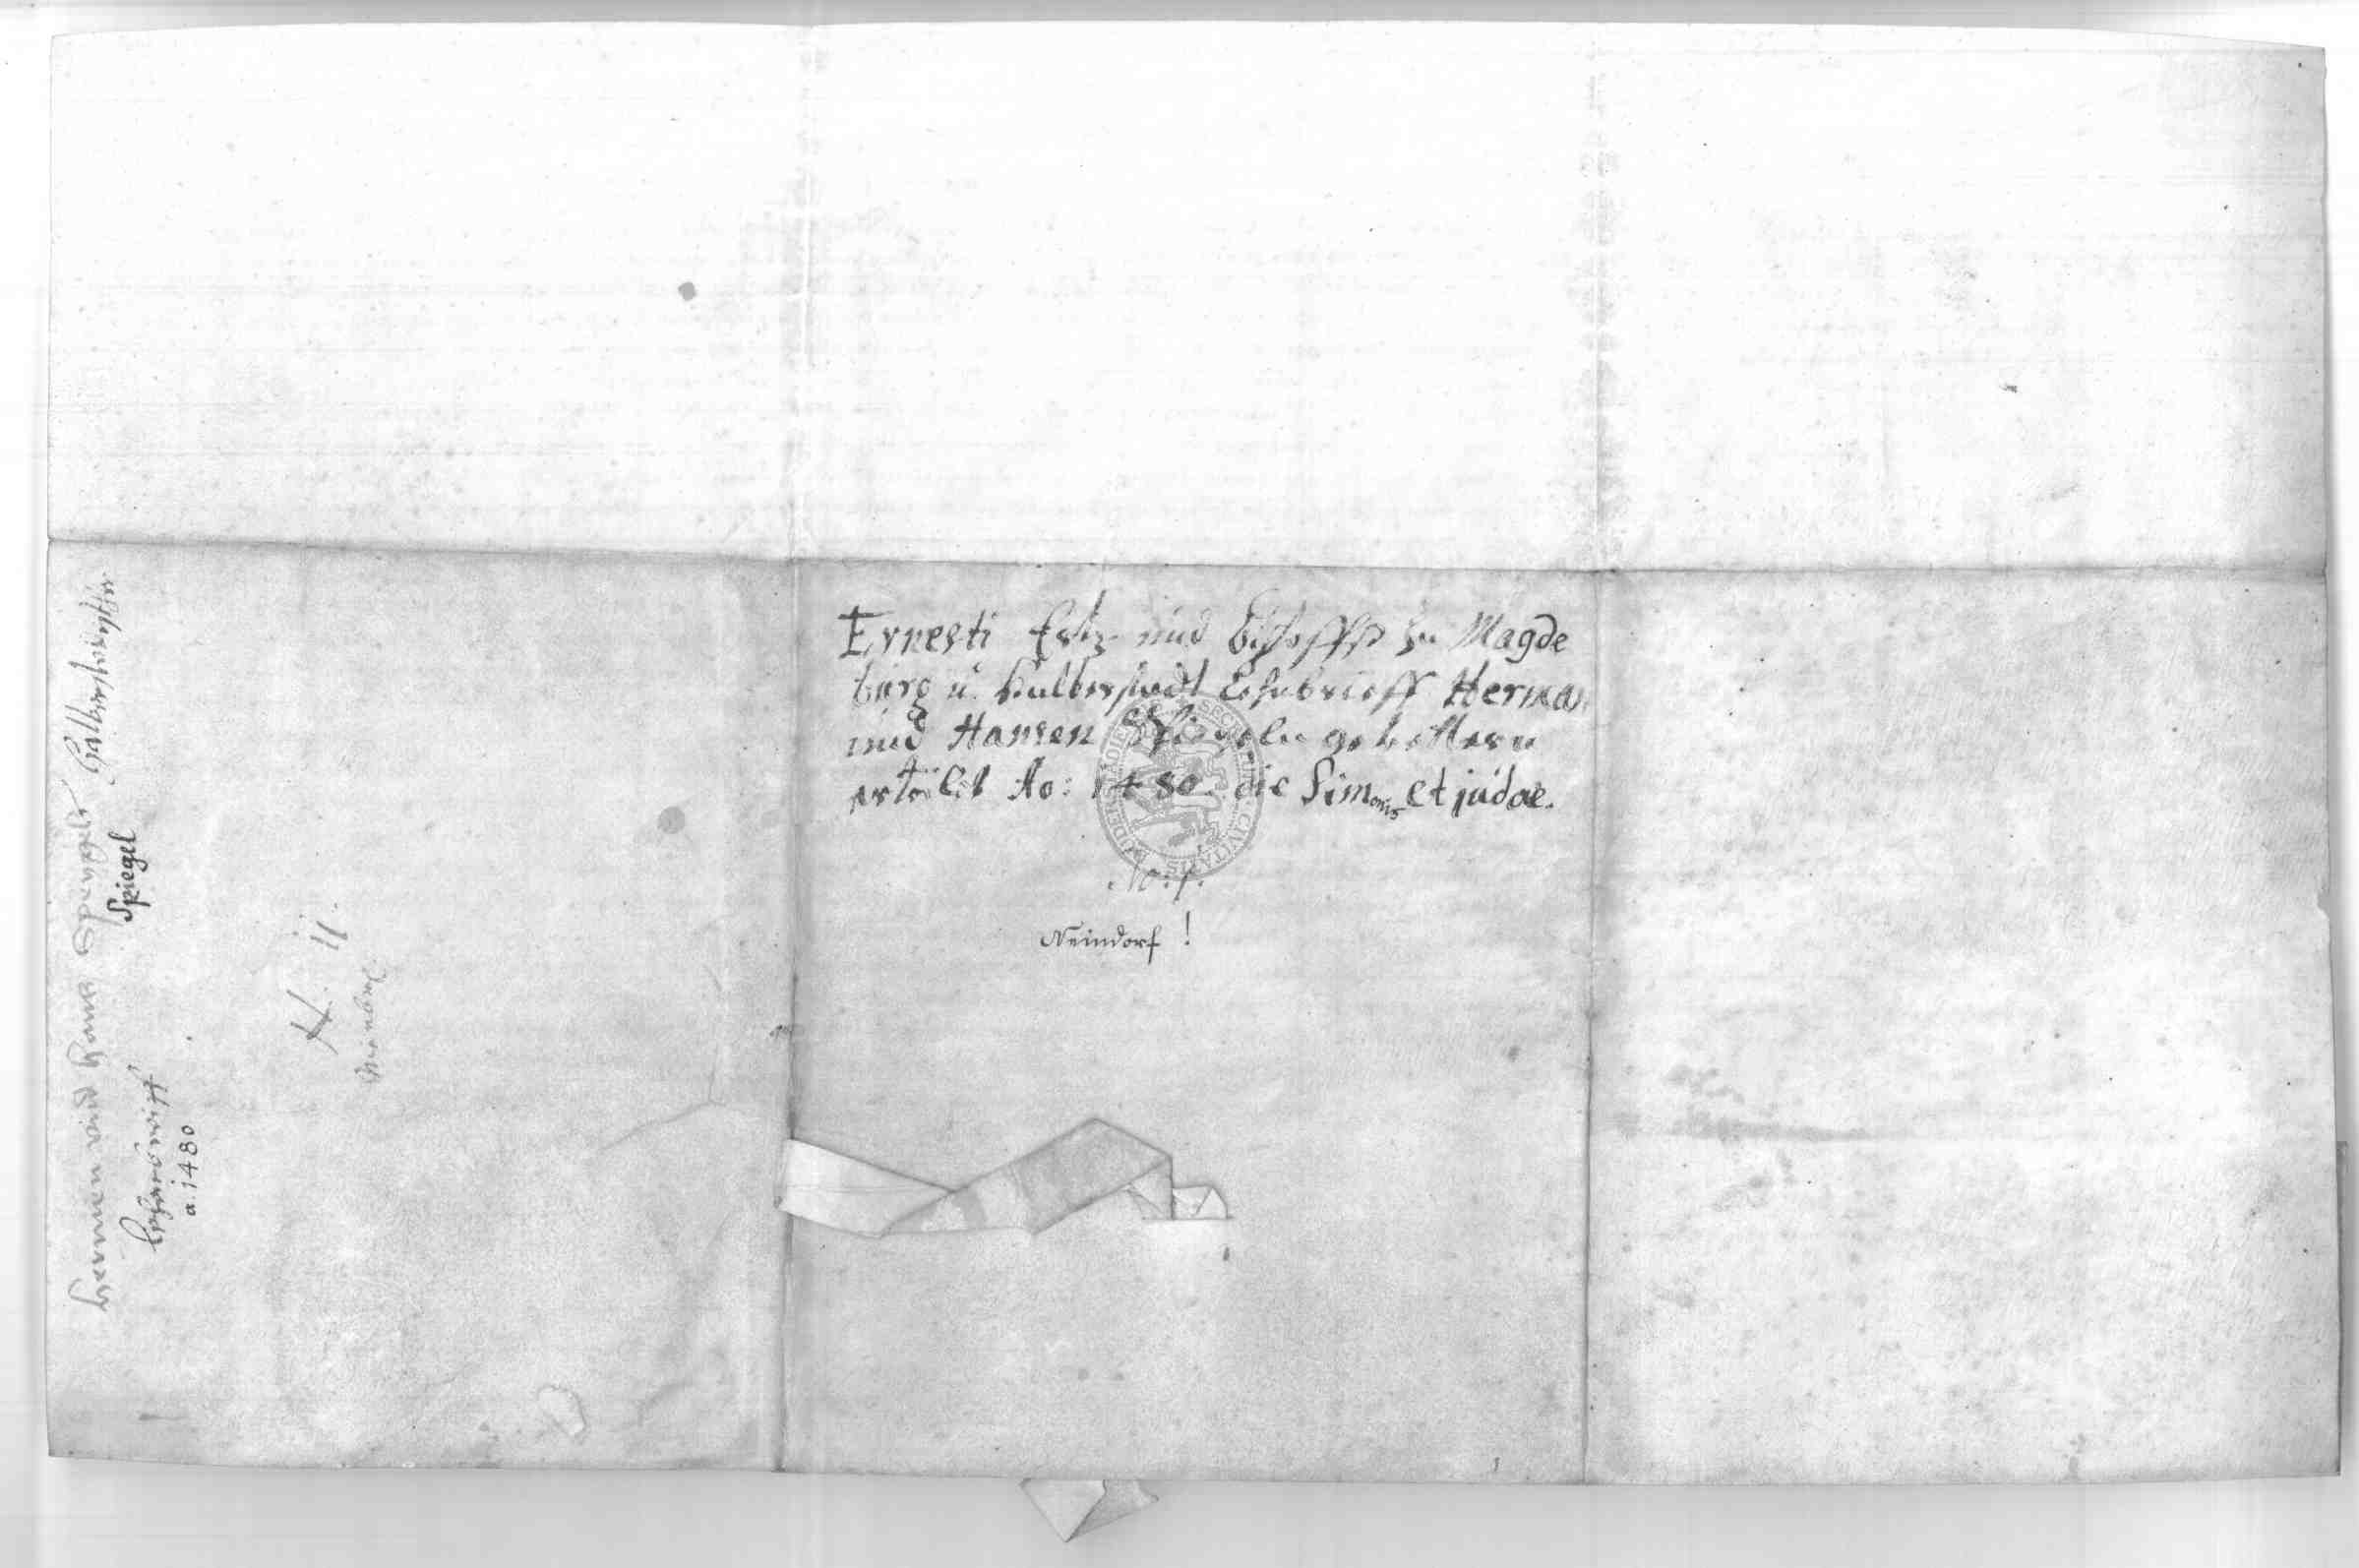 Ernesti Ertz- und Bischoffs zu Magde
burg u. Halberstadt Lehnbrieff Herman
und Hansen Spiegeln gevettern
erteilet Ao: 1480. die Simonis et judae.
No: 1.
Neindorf !
Hermen und Hans Spegels Halberstetischer
Spiegel
Lehenbrieff
a. 1480